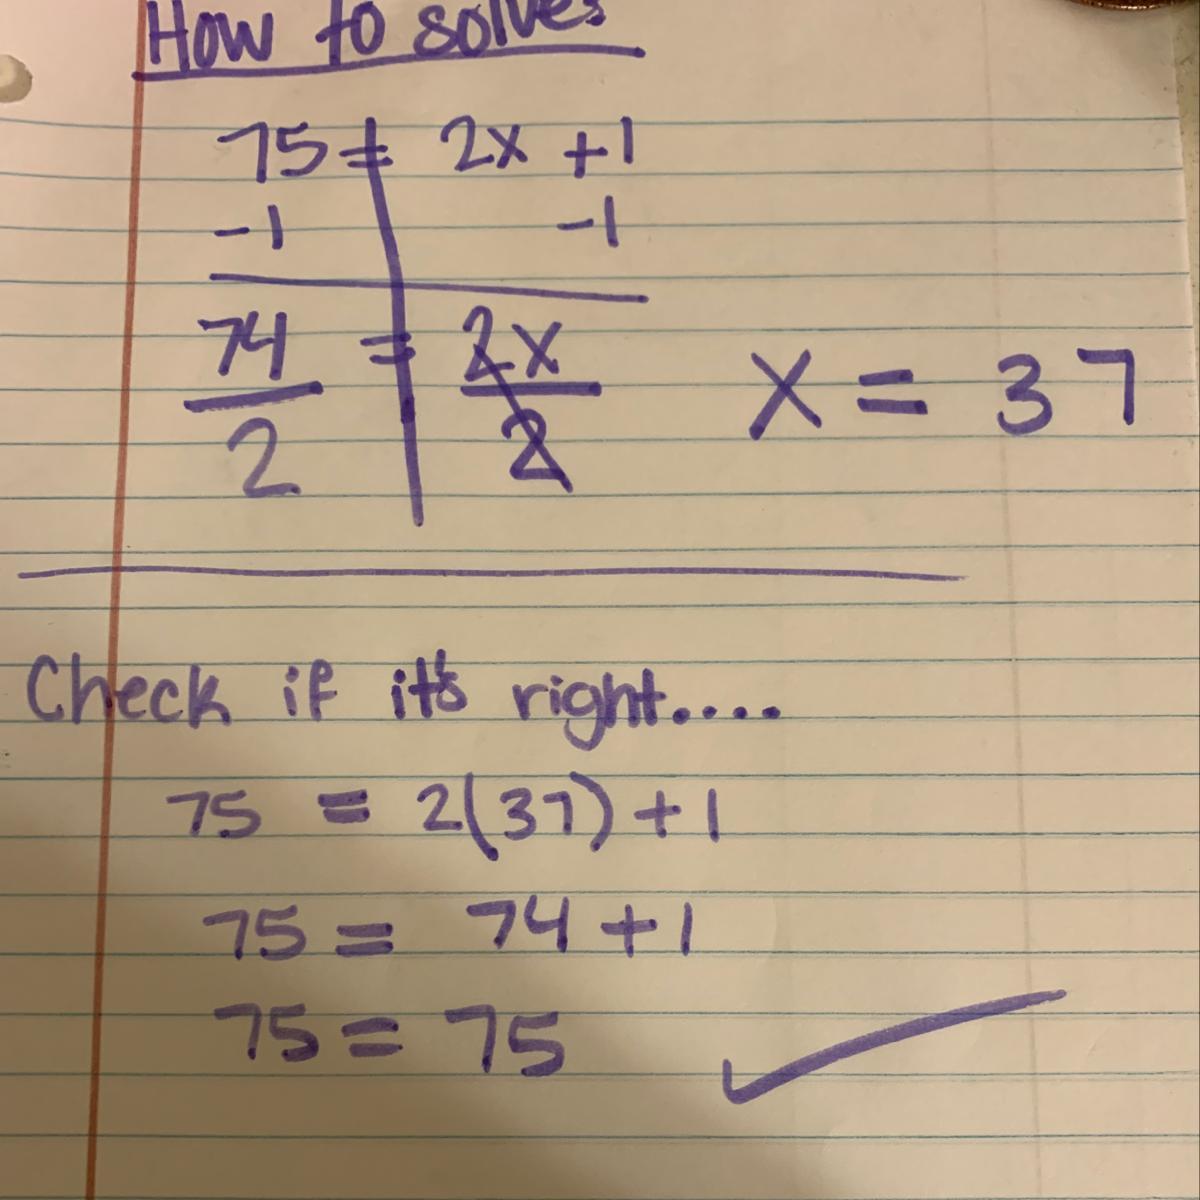 How to solve
75 = 2x + 1
-1 -1
74 = 2x
2 2
x = 37
Check if it's right....
75 = 2(37) + 1
75 = 74 + 1
75 = 75 ✓